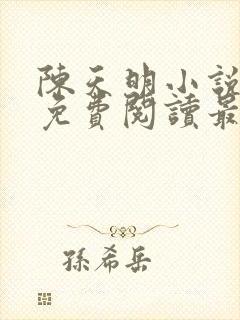 陳天明小說
免費閱讀最
孫希岳